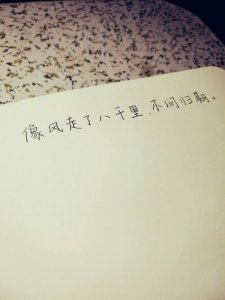 像风走了八千里.不问归期。